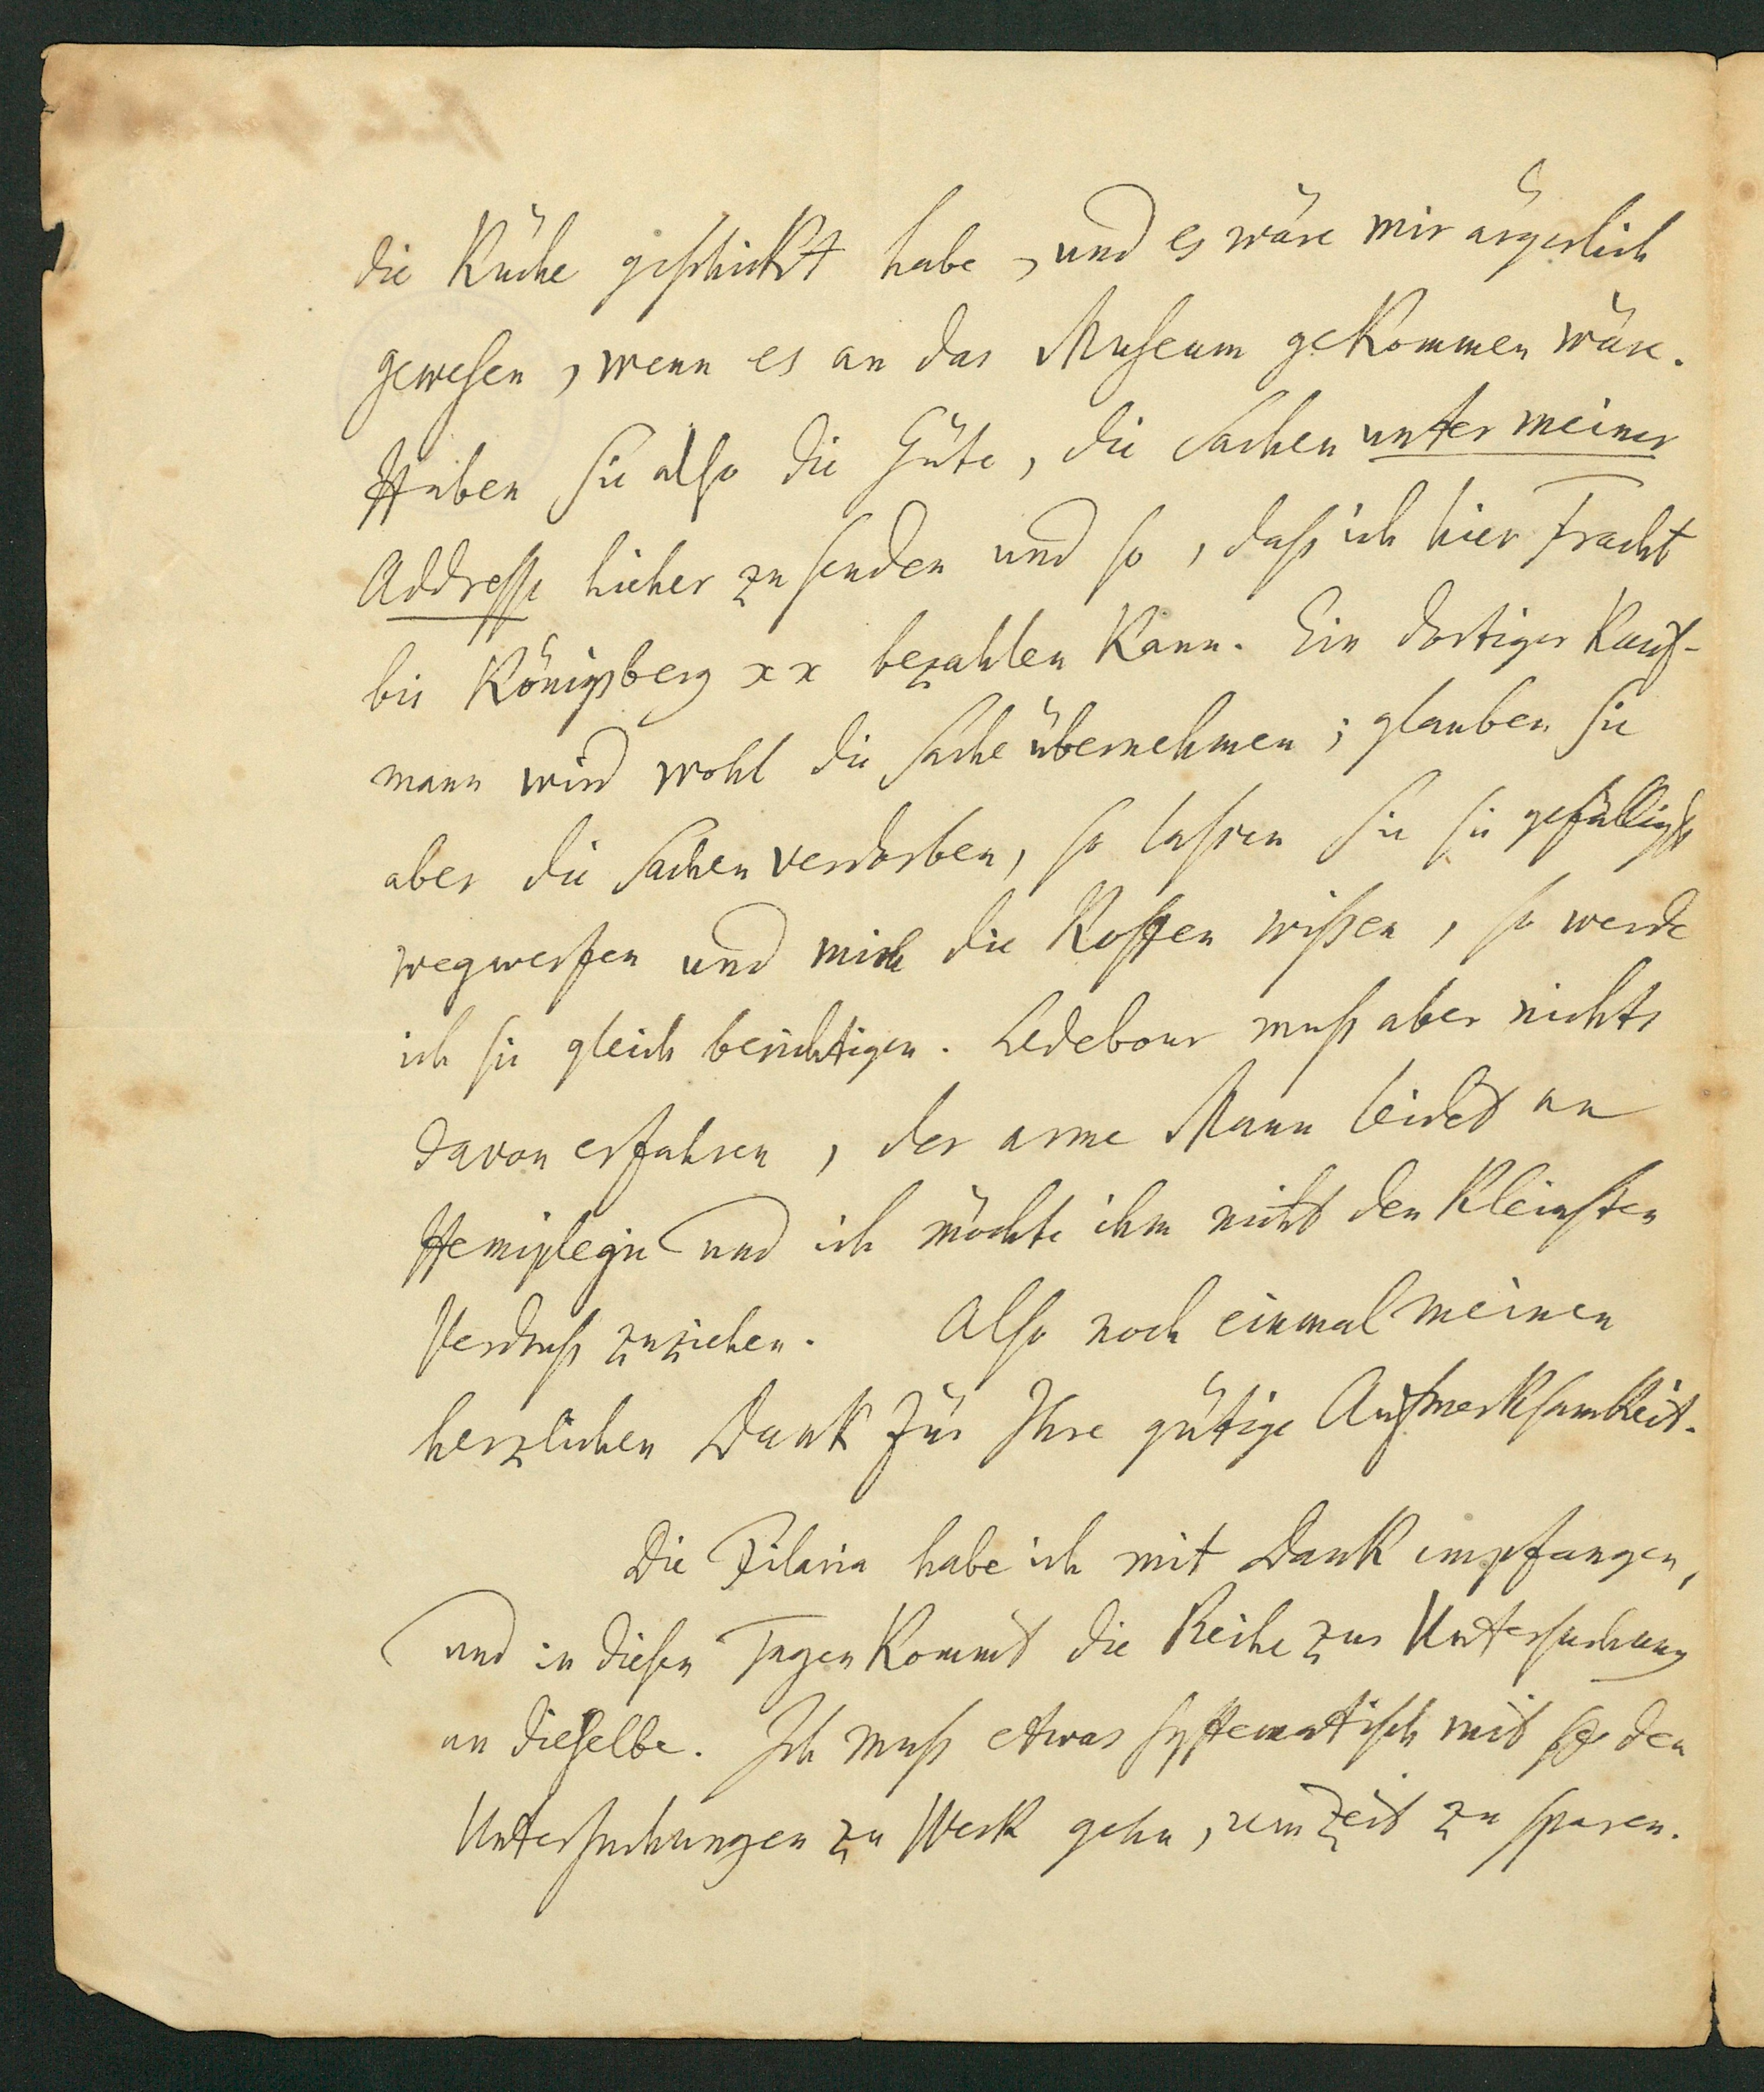 die Küche geschickt habe, und es wäre mir ärgerlich
gewesen, wenn es an das Museum gekommen wäre.
Haben Sie also die Güte, die Sachen unter meiner
Addresse hieher zu senden und so, daß ich hier Fracht
bis Königsberg xx bezahlen kann. Ein dortiger Kauf-
mann wird wohl die Sache übernehmen; glauben Sie
aber die Sachen verdorben, so lassen Sie sie gefälligst
wegwerfen und mich die Kosten wißen, so werde
ich sie gleich berichtigen. Ledebour muß aber nichts
davon erfahren, der arme Mann leidet an
Hemiplegie und ich möchte ihm nicht den kleinsten
Verdruß zuziehen. Also noch einmal meinen
herzlichen Dank für Ihre gütige Aufmerksamkeit.
Die Filaria habe ich mit Dank empfangen,
und in diesen Tagen kommt die Reihe zur Untersuchung
an dieselbe. Ich muß etwas systematisch mit den
Untersuchungen zu Werk gehn, um Zeit zu sparen.